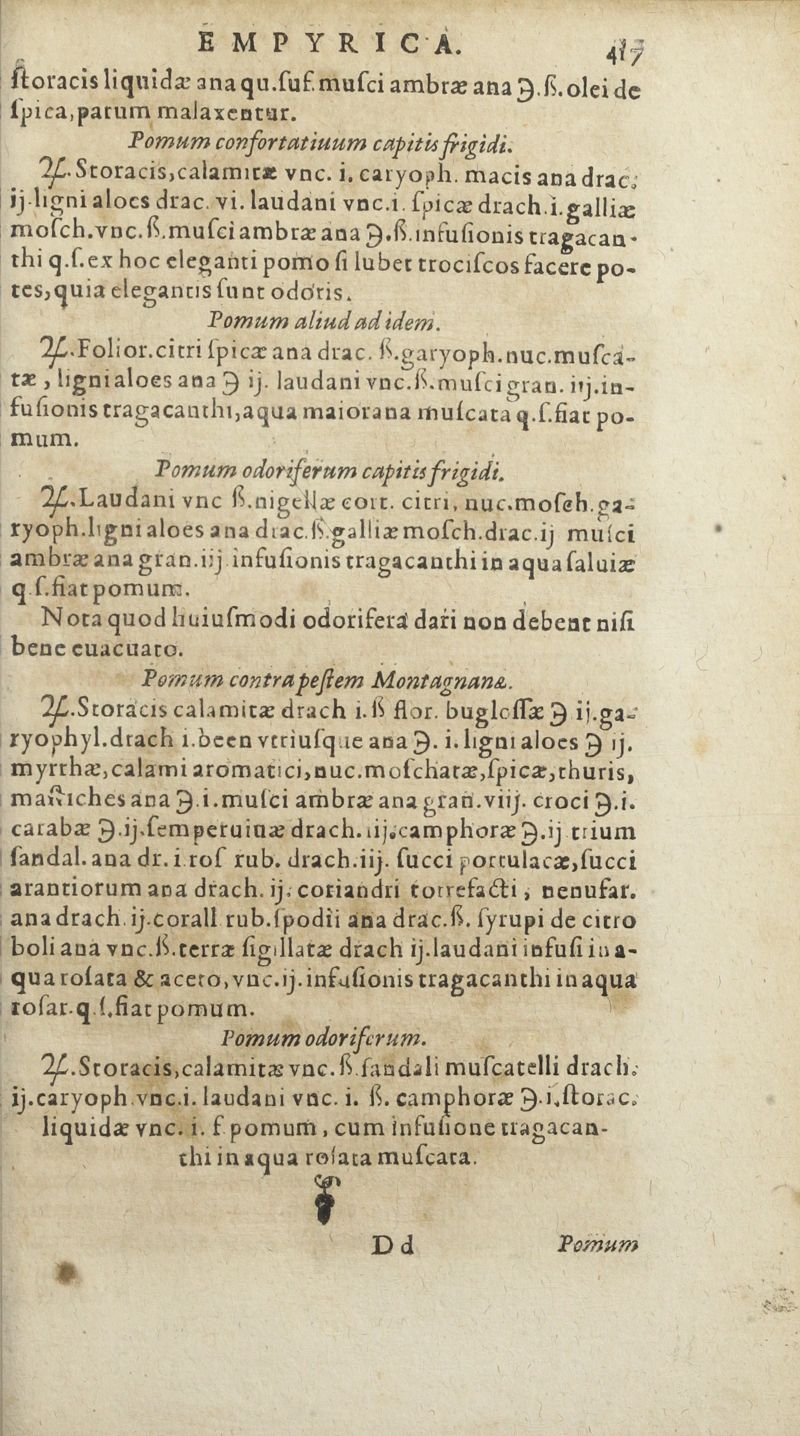 EMPYRICA. 417
ſtoracis liquidæ ana qu.ſuf. muſci ambræ ana ℈.ß. olei de
ſpica, parum malaxentur.
Pomum confortatiuum capitis frigidi.
℞. Storacis, calamitæ vnc. i. caryoph. macis ana drac.
ij ligni aloes drac. vi. laudani vnc.i. ſpicæ drach.i. galliæ
moſch. vnc. ß. muſci ambræ ana ℈.ß. infuſionis tragacan-
thi q.ſ. ex hoc eleganti pomo ſi lubet trociſcos facere po-
tes, quia elegantis ſunt odoris.
Pomum aliud ad idem.
℞. Folior. citri ſpicæ ana drac. ß. garyoph. nuc. muſca-
tæ, ligni aloes ana ℈ ij. laudani vnc. ß. muſci gran. iij. in-
fuſionis tragacanthi, aqua maiorana muſcata q.ſ. fiat po-
mum.
Pomum odoriferum capitis frigidi.
℞. Laudani vnc ß. nigellæ cort. citri, nuc. moſch. ga-
ryoph. ligni aloes ana drac. ß. galliæ moſch. drac. ij muſci
ambræ ana gran. iij infuſionis tragacanthi in aqua ſaluiæ
q ſ. fiat pomum.
Nota quod huiuſmodi odorifera dari non debent niſi
bene euacuato.
Pomum contra peſtem Montagnanæ.
℞. Storacis calamitæ drach i. ß flor. bugloſſæ ℈ ij. ga-
ryophyl. drach i. been vtriuſque ana ℈. i. ligni aloes ℈ ij.
myrrhæ, calami aromatici, nuc. moſchatæ, ſpicæ, thuris,
maſtiches ana ℈.i. muſci ambræ ana gran. viij. croci ℈.i.
carabæ ℈.ij. ſemperuiuæ drach. iij. camphoræ ℈.ij trium
ſandal. ana dr. i roſ rub. drach. iij. ſucci portulacæ, ſucci
arantiorum ana drach. ij. coriandri torrefacti, nenufar.
ana drach. ij. corall rub. ſpodii ana drac. ß. ſyrupi de citro
boli ana vnc. ß. terræ ſigillatæ drach ij. laudani infuſi in a-
qua roſata & aceto, vnc. ij. infuſionis tragacanthi in aqua
roſar. q.ſ. fiat pomum.
Pomum odoriferum.
℞. Storacis, calamitæ vnc. ß. ſandali muſcatelli drach.
ij. caryoph. vnc. i. laudani vnc. i. ß. camphoræ ℈. i, ſtorac.
liquidæ vnc. i. f pomum, cum infuſione tragacan-
thi in aqua roſata muſcata.
Dd Pomum